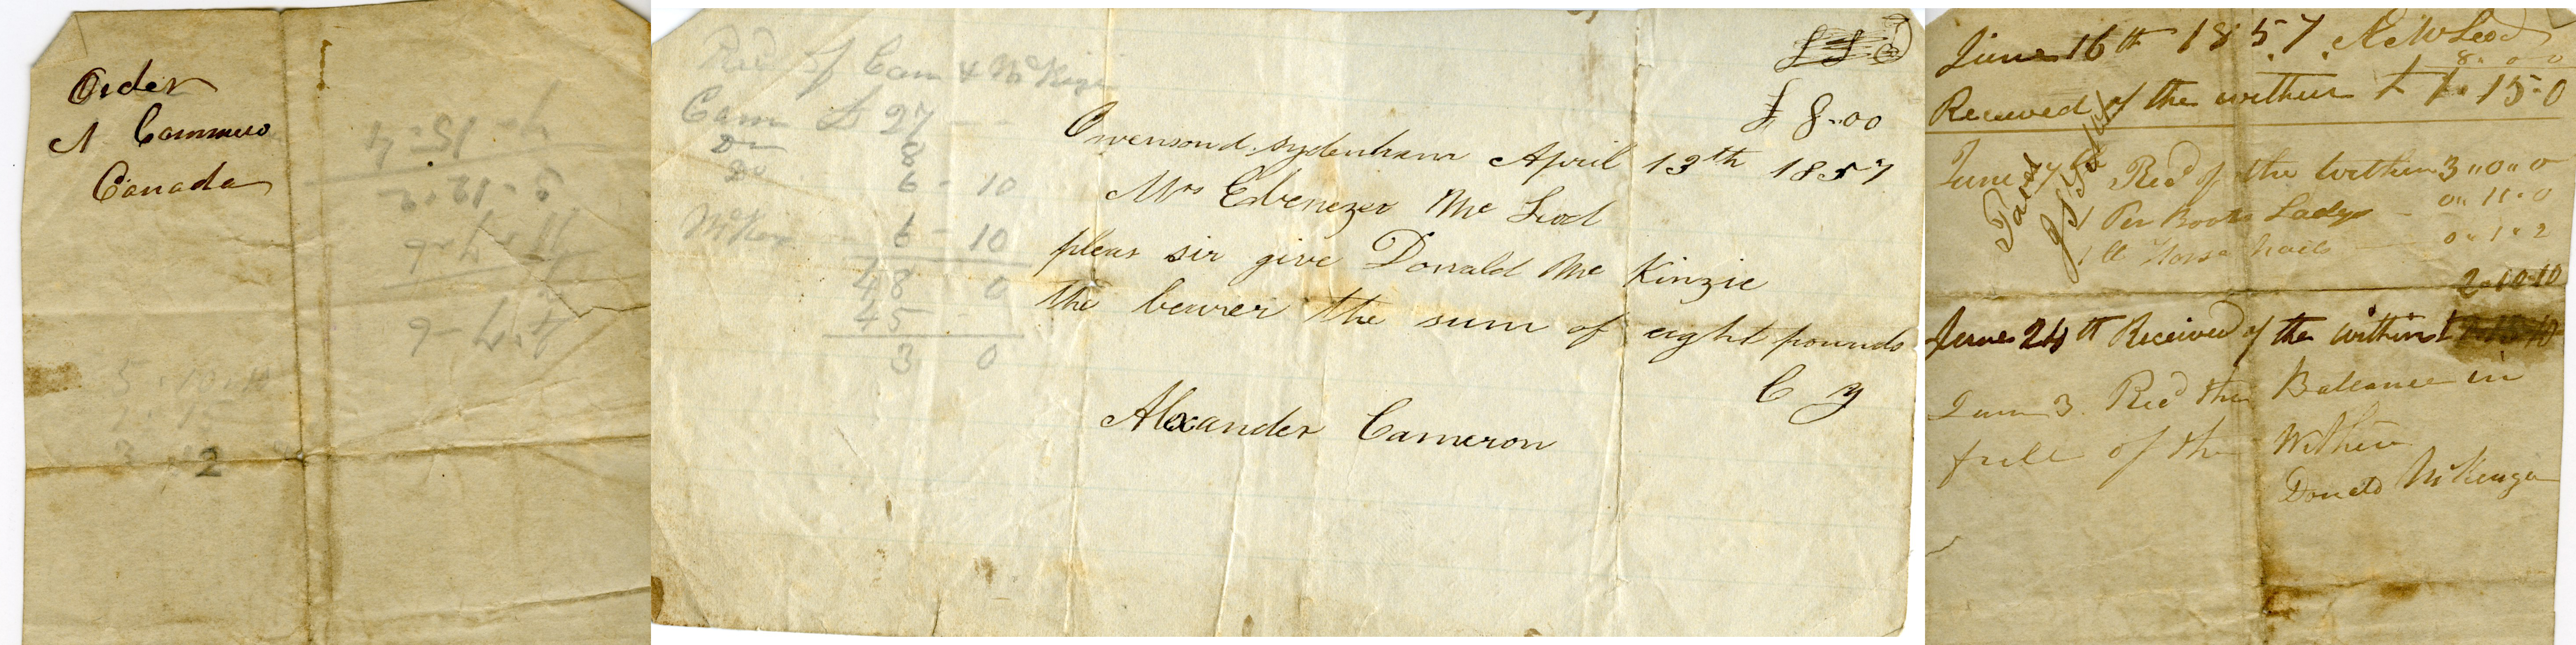 Order
A Cammero
Canada
7 - 15 - 4
5 - 12 - 2
11 - 7 - 6
4 - 7 - 6
5 - 10 - 10
2
Recd of Cam & McKen
Cam £ 27 - -
Do 8
Do 6 - 10
McKen - 6 - 10
48 0
45
3 0
£ 8-00
Owensond sydenham April 13th 1857
Mrs Ebenezer Mc Leod
pleas sir give Donald Mc Kinzie
the bearer the sum of eight pounds
C y
Alexander Cameron
June 16th 1857. McLeod
8 . 0 0
Received of the within £ 1 . 15-0
June 7 Recd of the Within 3 " 0 " 0
1 Per Boots Ladys - 0 " 11 " 0
1 lb Horse Nails - 0 " 1 " 2
2-10-10
June 24th Received of the within £
June 3. Recd the Balance in
full of the Within
Donald McKenzie